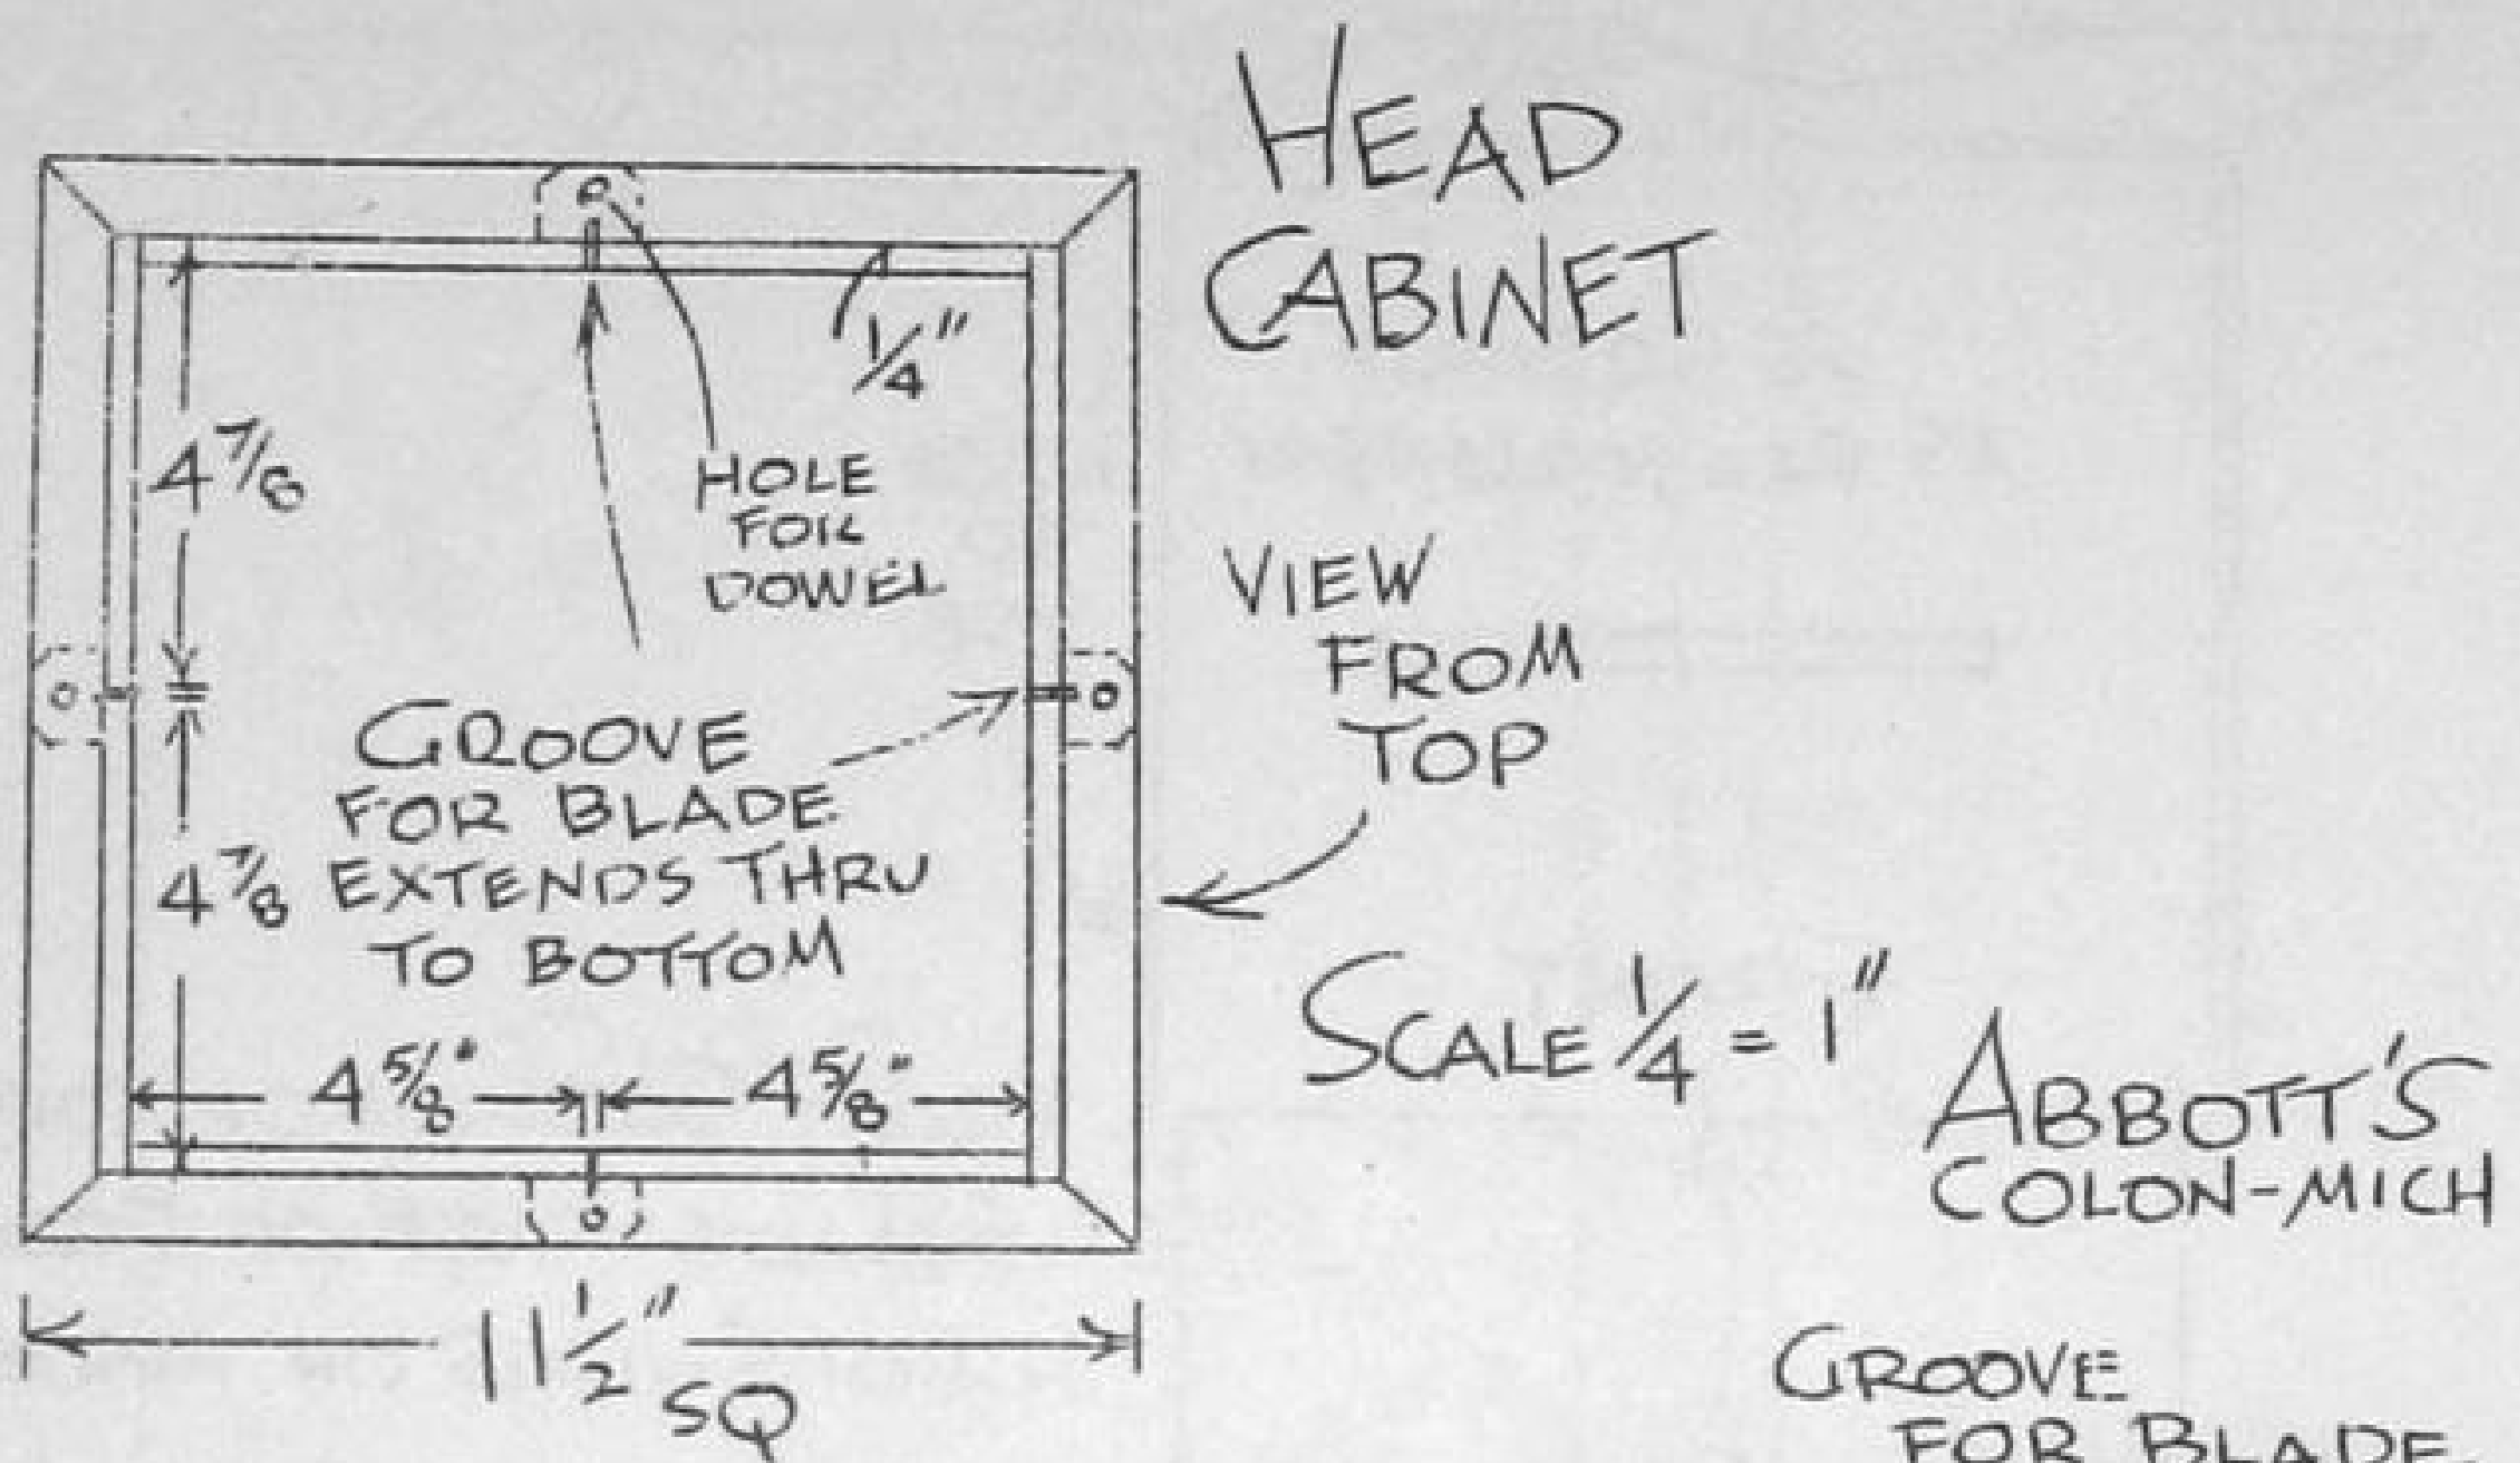 HEAD
CABINET
1/4"
4 7/8
HOLE
FOR
DOWEL
VIEW
FROM
TOP
GROOVE
FOR BLADE
EXTENDS THRU
TO BOTTOM
4 7/8
SCALE 1/4 = 1"
4 5/8" 4 5/8"
ABBOTT'S
COLON-MICH
11 1/2"
SQ
GROOVE
FOR BLADE